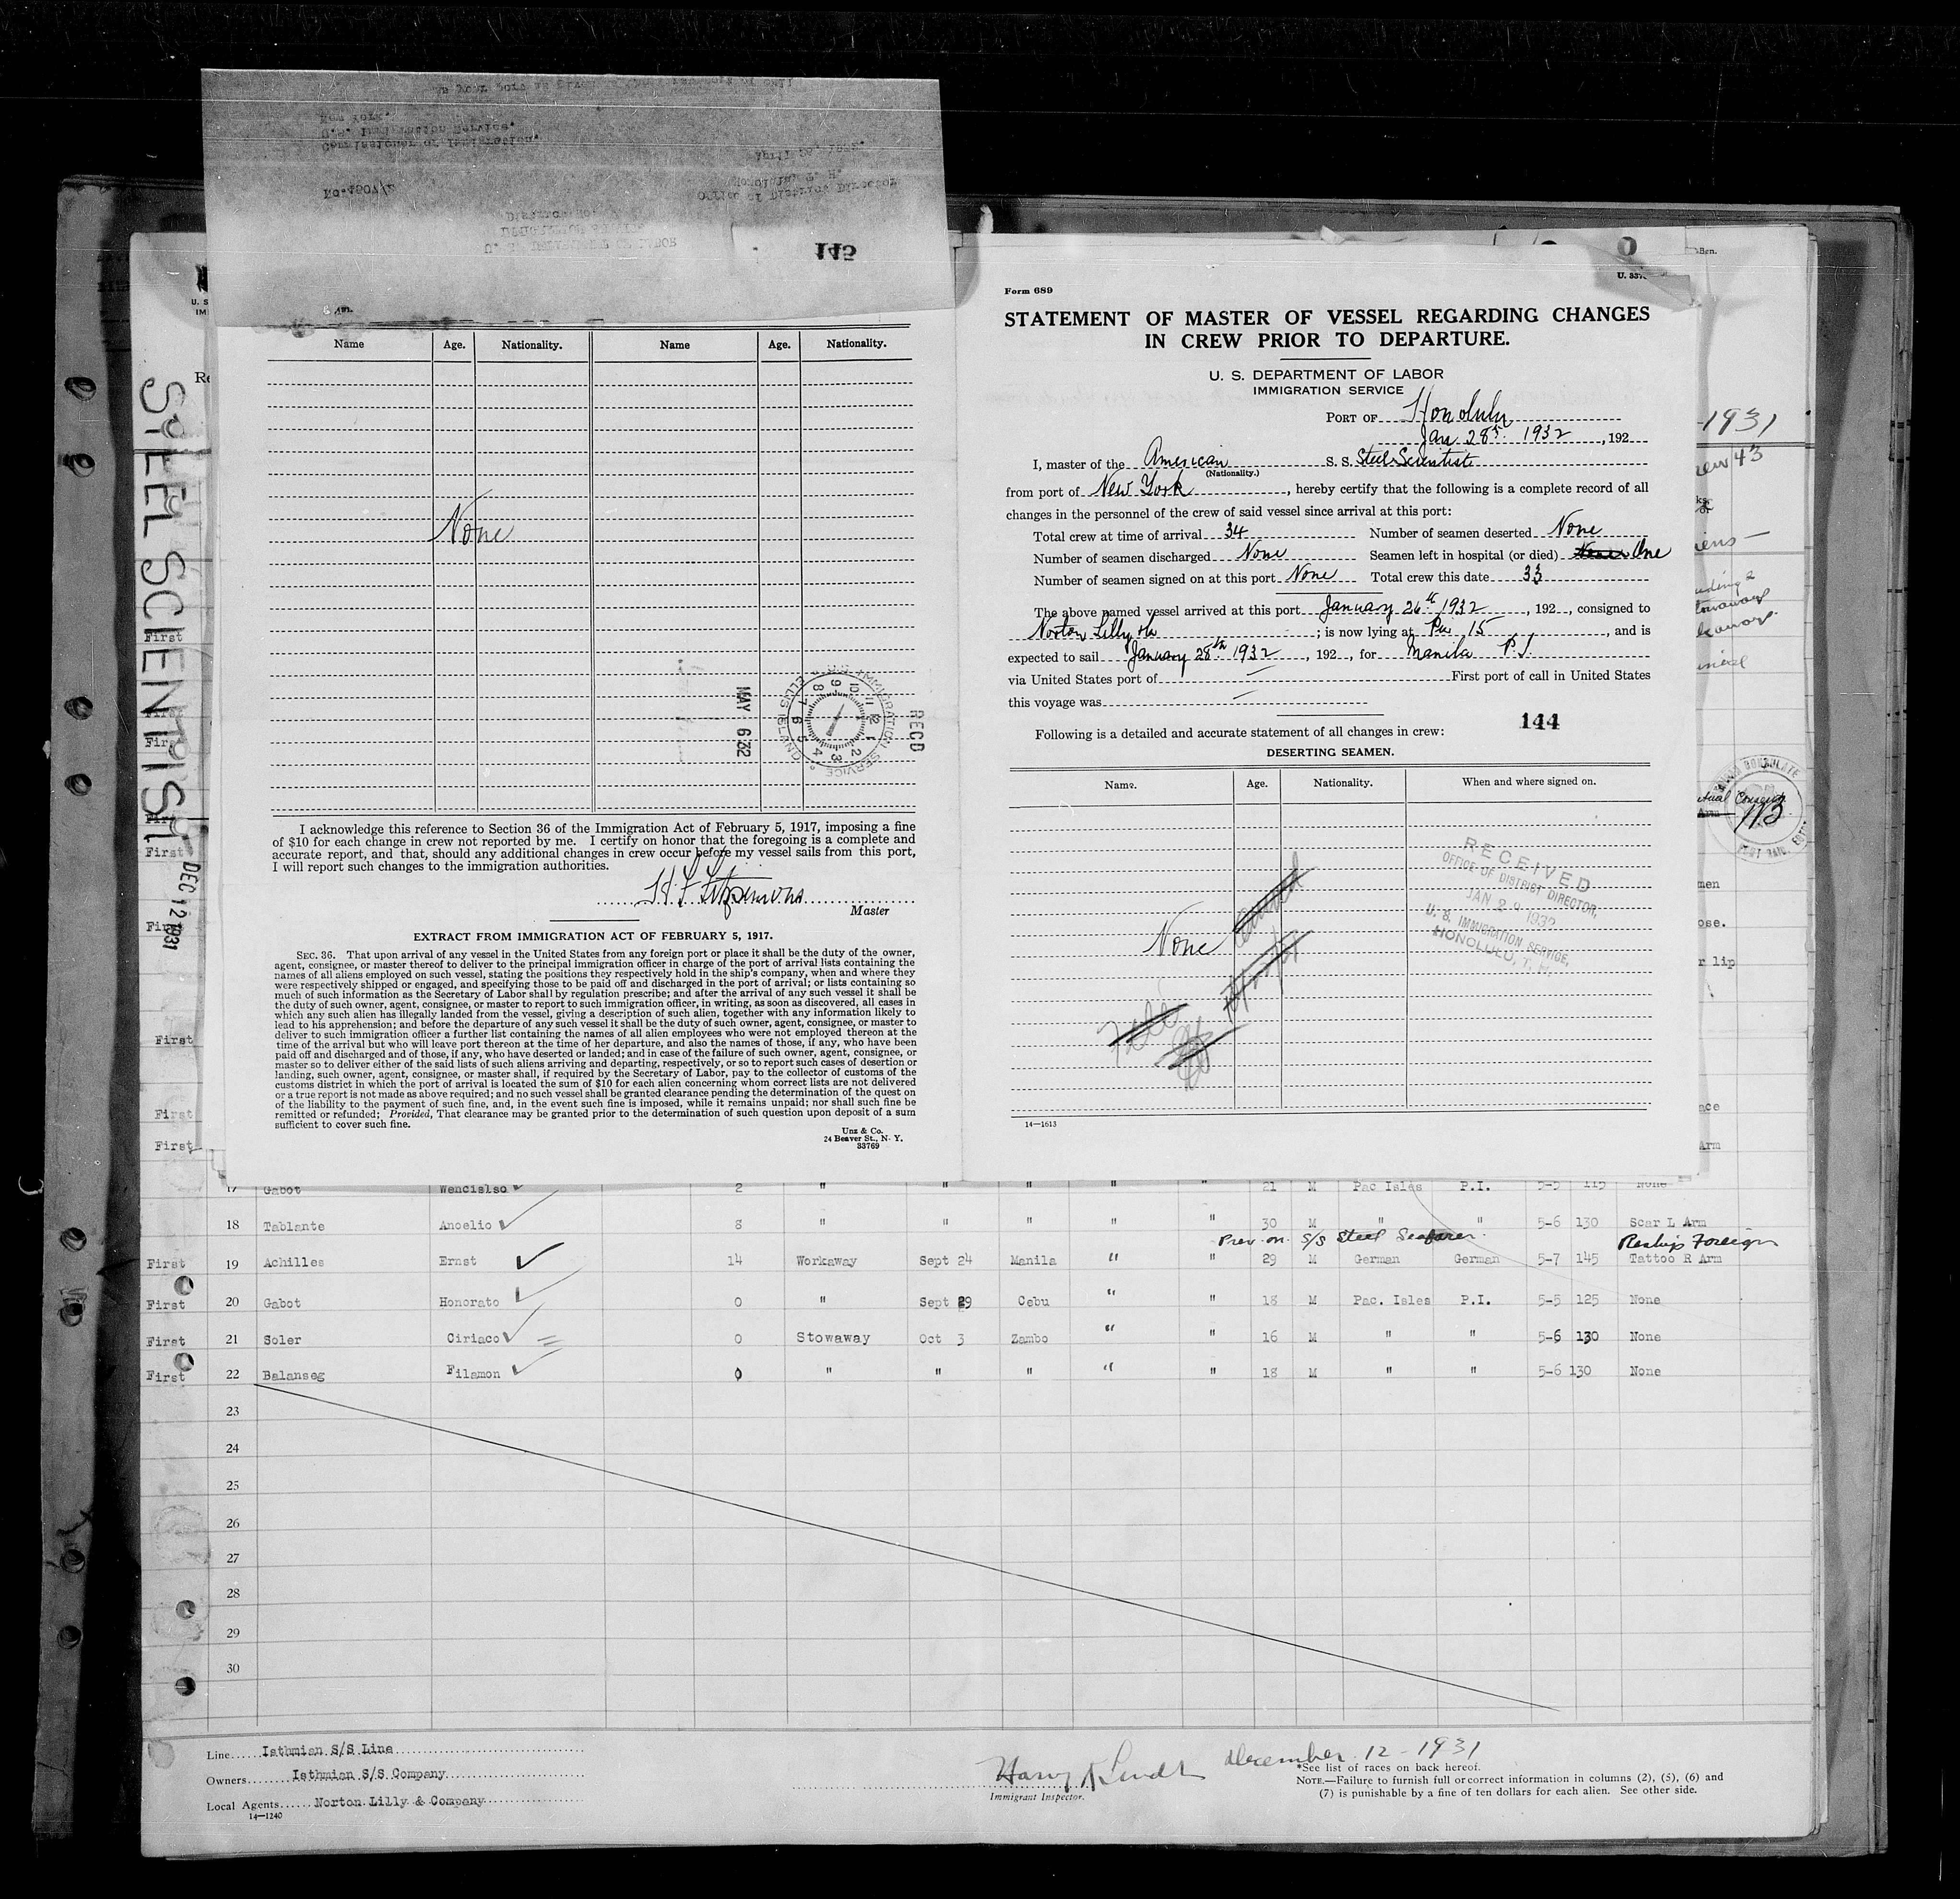 145
U. S. DEPARTMENT OF LABOR
IMMIGRATION SERVICE
District No.
No. 4507/2
Office of District Director
Honolulu, T. H.
Commissioner of Immigration,
U.S. Immigration Service,
New York.
STEEL SCIENTIST
DEC 12 1931
Name Age. Nationality. Name Age. Nationality.
None
MAY 6 32
IMMIGRATION SERVICE ELLIS ISLAND
RECD
I acknowledge this reference to Section 36 of the Immigration Act of February 5, 1917, imposing a fine
of $10 for each change in crew not reported by me. I certify on honor that the foregoing is a complete and
accurate report, and that, should any additional changes in crew occur before my vessel sails from this port,
I will report such changes to the immigration authorities.
Master
EXTRACT FROM IMMIGRATION ACT OF FEBRUARY 5, 1917.
SEC. 36. That upon arrival of any vessel in the United States from any foreign port or place it shall be the duty of the owner,
agent, consignee, or master thereof to deliver to the principal immigration officer in charge of the port of arrival lists containing the
names of all aliens employed on such vessel, stating the positions they respectively hold in the ship's company, when and where they
were respectively shipped or engaged, and specifying those to be paid off and discharged in the port of arrival; or lists containing so
much of such information as the Secretary of Labor shall by regulation prescribe; and after the arrival of any such vessel it shall be
the duty of such owner, agent, consignee, or master to report to such immigration officer, in writing, as soon as discovered, all cases in
which any such alien has illegally landed from the vessel, giving a description of such alien, together with any information likely to
lead to his apprehension; and before the departure of any such vessel it shall be the duty of such owner, agent, consignee, or master to
deliver to such immigration officer a further list containing the names of all alien employees who were not employed thereon at the
time of the arrival but who will leave port thereon at the time of her departure, and also the names of those, if any, who have been
paid off and discharged and of those, if any, who have deserted or landed; and in case of the failure of such owner, agent, consignee, or
master so to deliver either of the said lists of such aliens arriving and departing, respectively, or so to report such cases of desertion or
landing, such owner, agent, consignee, or master shall, if required by the Secretary of Labor, pay to the collector of customs of the
customs district in which the port of arrival is located the sum of $10 for each alien concerning whom correct lists are not delivered
or a true report is not made as above required; and no such vessel shall be granted clearance pending the determination of the quest on
of the liability to the payment of such fine, and, in the event such fine is imposed, while it remains unpaid; nor shall such fine be
remitted or refunded; Provided, That clearance may be granted prior to the determination of such question upon deposit of a sum
sufficient to cover such fine.
Unz & Co.
24 Beaver St., N. Y.
33769
Form 689
STATEMENT OF MASTER OF VESSEL REGARDING CHANGES
IN CREW PRIOR TO DEPARTURE.
U. S. DEPARTMENT OF LABOR
IMMIGRATION SERVICE
PORT OF Honolulu
Jan 28th 1932, 192
I, master of the American S. S. Steel Scientist
(Nationality.)
from port of New York, hereby certify that the following is a complete record of all
changes in the personnel of the crew of said vessel since arrival at this port:
Total crew at time of arrival 34 Number of seamen deserted None
Number of seamen discharged None Seamen left in hospital (or died) One
Number of seamen signed on at this port None Total crew this date 33
The above named vessel arrived at this port January 26th 1932, 192, consigned to
Norton Lilly Co; is now lying at Pier 15, and is
expected to sail January 28th 1932, 192, for Manila P.I.
via United States port of First port of call in United States
this voyage was
144
Following is a detailed and accurate statement of all changes in crew:
DESERTING SEAMEN.
Name. Age. Nationality. When and where signed on.
RECEIVED
OFFICE OF DISTRICT DIRECTOR,
JAN 29 1932
U. S. IMMIGRATION SERVICE,
HONOLULU, T. H.
None
14—1613
1931
17 Gabot Wencislso 2 " " " " " 21 M Pac Isles P.I. 5-5 115 None
18 Tablante Anoelio 8 " " " " " 30 M " " 5-6 130 Scar L Arm
Prev on S/S Steel Seafarer. Reship Foreign
First 19 Achilles Ernst 14 Workaway Sept 24 Manila " " 29 M German German 5-7 145 Tattoo R Arm
First 20 Gabot Honorato 0 " Sept 29 Cebu " " 18 M Pac. Isles P.I. 5-5 125 None
First 21 Soler Ciriaco 0 Stowaway Oct 3 Zambo " " 16 M " " 5-6 130 None
First 22 Balanseg Filamon 0 " " " " " 18 M " " 5-6 130 None
23
24
25
26
27
28
29
30
Line Isthmian S/S Line
Owners Isthmian S/S Company
Local Agents Norton Lilly & Company
14—1240
December 12-1931
Immigrant Inspector.
*See list of races on back hereof.
NOTE.—Failure to furnish full or correct information in columns (2), (5), (6) and
(7) is punishable by a fine of ten dollars for each alien. See other side.